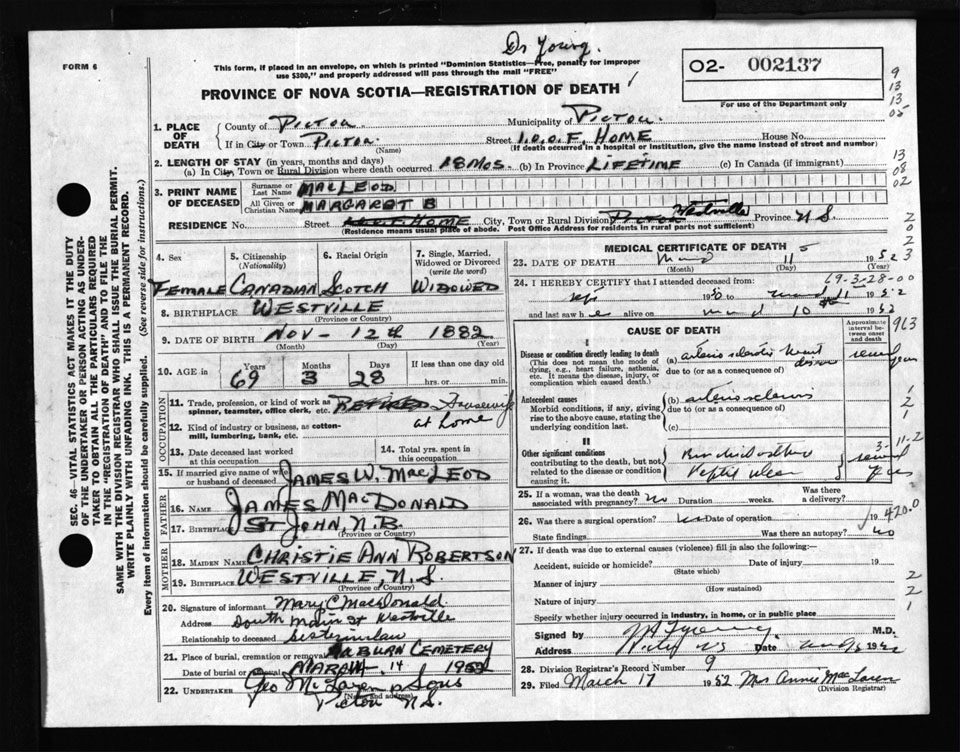 Dr Young.
FORM 6
This form, if placed in an envelope, on which is printed "Dominion Statistics—Free, penalty for improper
use $300," and properly addressed will pass through the mail "FREE"
O2- 002137
PROVINCE OF NOVA SCOTIA—REGISTRATION OF DEATH
For use of the Department only
9
13
13
05
13
08
02
2
0
2
2
3
1. PLACE OF DEATH
County of Pictou Municipality of Pictou
If in City or Town Pictou Street I.O.O.F. HOME House No.
(Name) (If death occurred in a hospital or institution, give the name instead of street and number)
2. LENGTH OF STAY (in years, months and days)
(a) In City, Town or Rural Division where death occurred 18 MOS. (b) In Province LIFETIME (c) In Canada (if immigrant)
3. PRINT NAME OF DECEASED
Surname or Last Name MACLEOD
All Given or Christian Names MARGARET B
RESIDENCE No. Street HOME City, Town or Rural Division Pictou Westville Province N.S.
(Residence means usual place of abode. Post Office Address for residents in rural parts not sufficient)
4. Sex
FEMALE
5. Citizenship (Nationality)
CANADIAN
6. Racial Origin
SCOTCH
7. Single, Married, Widowed or Divorced (write the word)
WIDOWED
8. BIRTHPLACE WESTVILLE
(Province or Country)
9. DATE OF BIRTH NOV - 12th 1882
(Month) (Day) (Year)
10. AGE in Years Months Days If less than one day
69 3 28 hrs. or min.
OCCUPATION
11. Trade, profession, or kind of work as spinner, teamster, office clerk, etc. RETIRED Housewife
at home
12. Kind of industry or business, as cotton-mill, lumbering, bank, etc.
13. Date deceased last worked at this occupation
14. Total yrs. spent in this occupation
15. If married give name of wife or husband of deceased JAMES W. MACLEOD
FATHER
16. Name JAMES MACDONALD
17. Birthplace ST JOHN, N.B.
(Province or Country)
MOTHER
18. MAIDEN NAME CHRISTIE ANN ROBERTSON
19. Birthplace WESTVILLE, N.S.
(Province or Country)
20. Signature of informant Mary C MacDonald
Address South Main St Westville
Relationship to deceased sisterinlaw
21. Place of burial, cremation or removal AUBURN CEMETERY
Date of burial or removal MARCH 14 1952
22. UNDERTAKER Geo McLaren & Sons
(Name and address)
Pictou N.S.
MEDICAL CERTIFICATE OF DEATH
23. DATE OF DEATH 11 1952
(Month) (Day) (Year)
69-3-28-00
24. I HEREBY CERTIFY that I attended deceased from:
1950 to 11 1952
and last saw h e alive on 10 1952
CAUSE OF DEATH
Approximate interval between onset and death
963
I
Disease or condition directly leading to death
(This does not mean the mode of dying, e.g., heart failure, asthenia, etc. It means the disease, injury, or complication which caused death.)
(a) arterio sclerotic heart
due to (or as a consequence of)
several years
Antecedent causes
Morbid conditions, if any, giving rise to the above cause, stating the underlying condition last.
(b) arteriosclerosis
due to (or as a consequence of)
(c)
1
2
1
II
Other significant conditions
contributing to the death, but not related to the disease or condition causing it.
Peptic ulcer
3-11-2
several
25. If a woman, was the death associated with pregnancy? no Duration weeks. Was there a delivery?
26. Was there a surgical operation? no Date of operation 19
420.0
State findings Was there an autopsy? no
27. If death was due to external causes (violence) fill in also the following:—
Accident, suicide or homicide? Date of injury 19
(State which)
Manner of injury
(How sustained)
Nature of injury
Specify whether injury occurred in industry, in home, or in public place
2
2
1
Signed by M.D.
Address Date 1952
28. Division Registrar's Record Number 9
29. Filed March 17 1952 Mrs Annie MacLaren
(Division Registrar)
SEC. 46—VITAL STATISTICS ACT MAKES IT THE DUTY
OF THE UNDERTAKER OR PERSON ACTING AS UNDER-
TAKER TO OBTAIN ALL THE PARTICULARS REQUIRED
IN THE "REGISTRATION OF DEATH" AND TO FILE THE
SAME WITH THE DIVISION REGISTRAR WHO SHALL ISSUE THE BURIAL PERMIT.
WRITE PLAINLY WITH UNFADING INK. THIS IS A PERMANENT RECORD.
Every item of information should be carefully supplied. (See reverse side for instructions.)